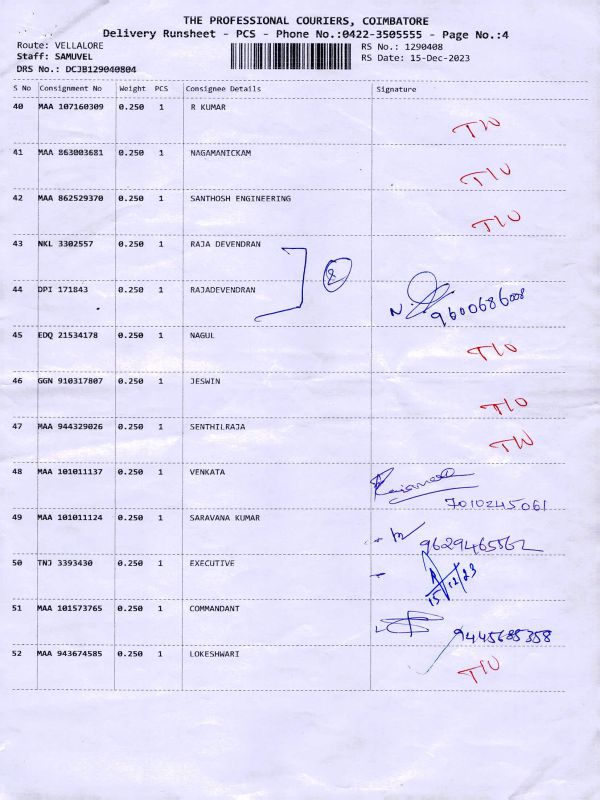 THE PROFESSIONAL COURIERS, COIMBATORE
Delivery Runsheet - PCS - Phone No.:0422-3505555 - Page No.:4
Route: VELLALORE RS No.: 1290408
Staff: SAMUVEL RS Date: 15-Dec-2023
DRS No.: DCJB129040804
S No Consignment No Weight PCS Consignee Details Signature
40 MAA 107160309 0.250 1 R KUMAR
41 MAA 863003681 0.250 1 NAGAMANICKAM
42 MAA 862529370 0.250 1 SANTHOSH ENGINEERING
43 NKL 3302557 0.250 1 RAJA DEVENDRAN
2
44 DPI 171843 0.250 1 RAJADEVENDRAN
9600686008
45 EDQ 21534178 0.250 1 NAGUL
46 GGN 910317807 0.250 1 JESWIN
47 MAA 944329026 0.250 1 SENTHILRAJA
48 MAA 101011137 0.250 1 VENKATA
7010245061
49 MAA 101011124 0.250 1 SARAVANA KUMAR
9629465562
50 TNJ 3393430 0.250 1 EXECUTIVE
15/12/23
51 MAA 101573765 0.250 1 COMMANDANT
9445685358
52 MAA 943674585 0.250 1 LOKESHWARI